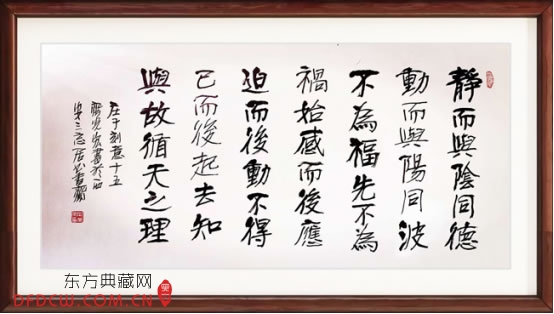 靜而與陰同德
動而與陽同波
不為福先不為
禍始感而後應
迫而後動不得
已而後起去知
與故循天之理
庄子刻意十五
書於西
东方典藏网
DFDCW.COM.CN